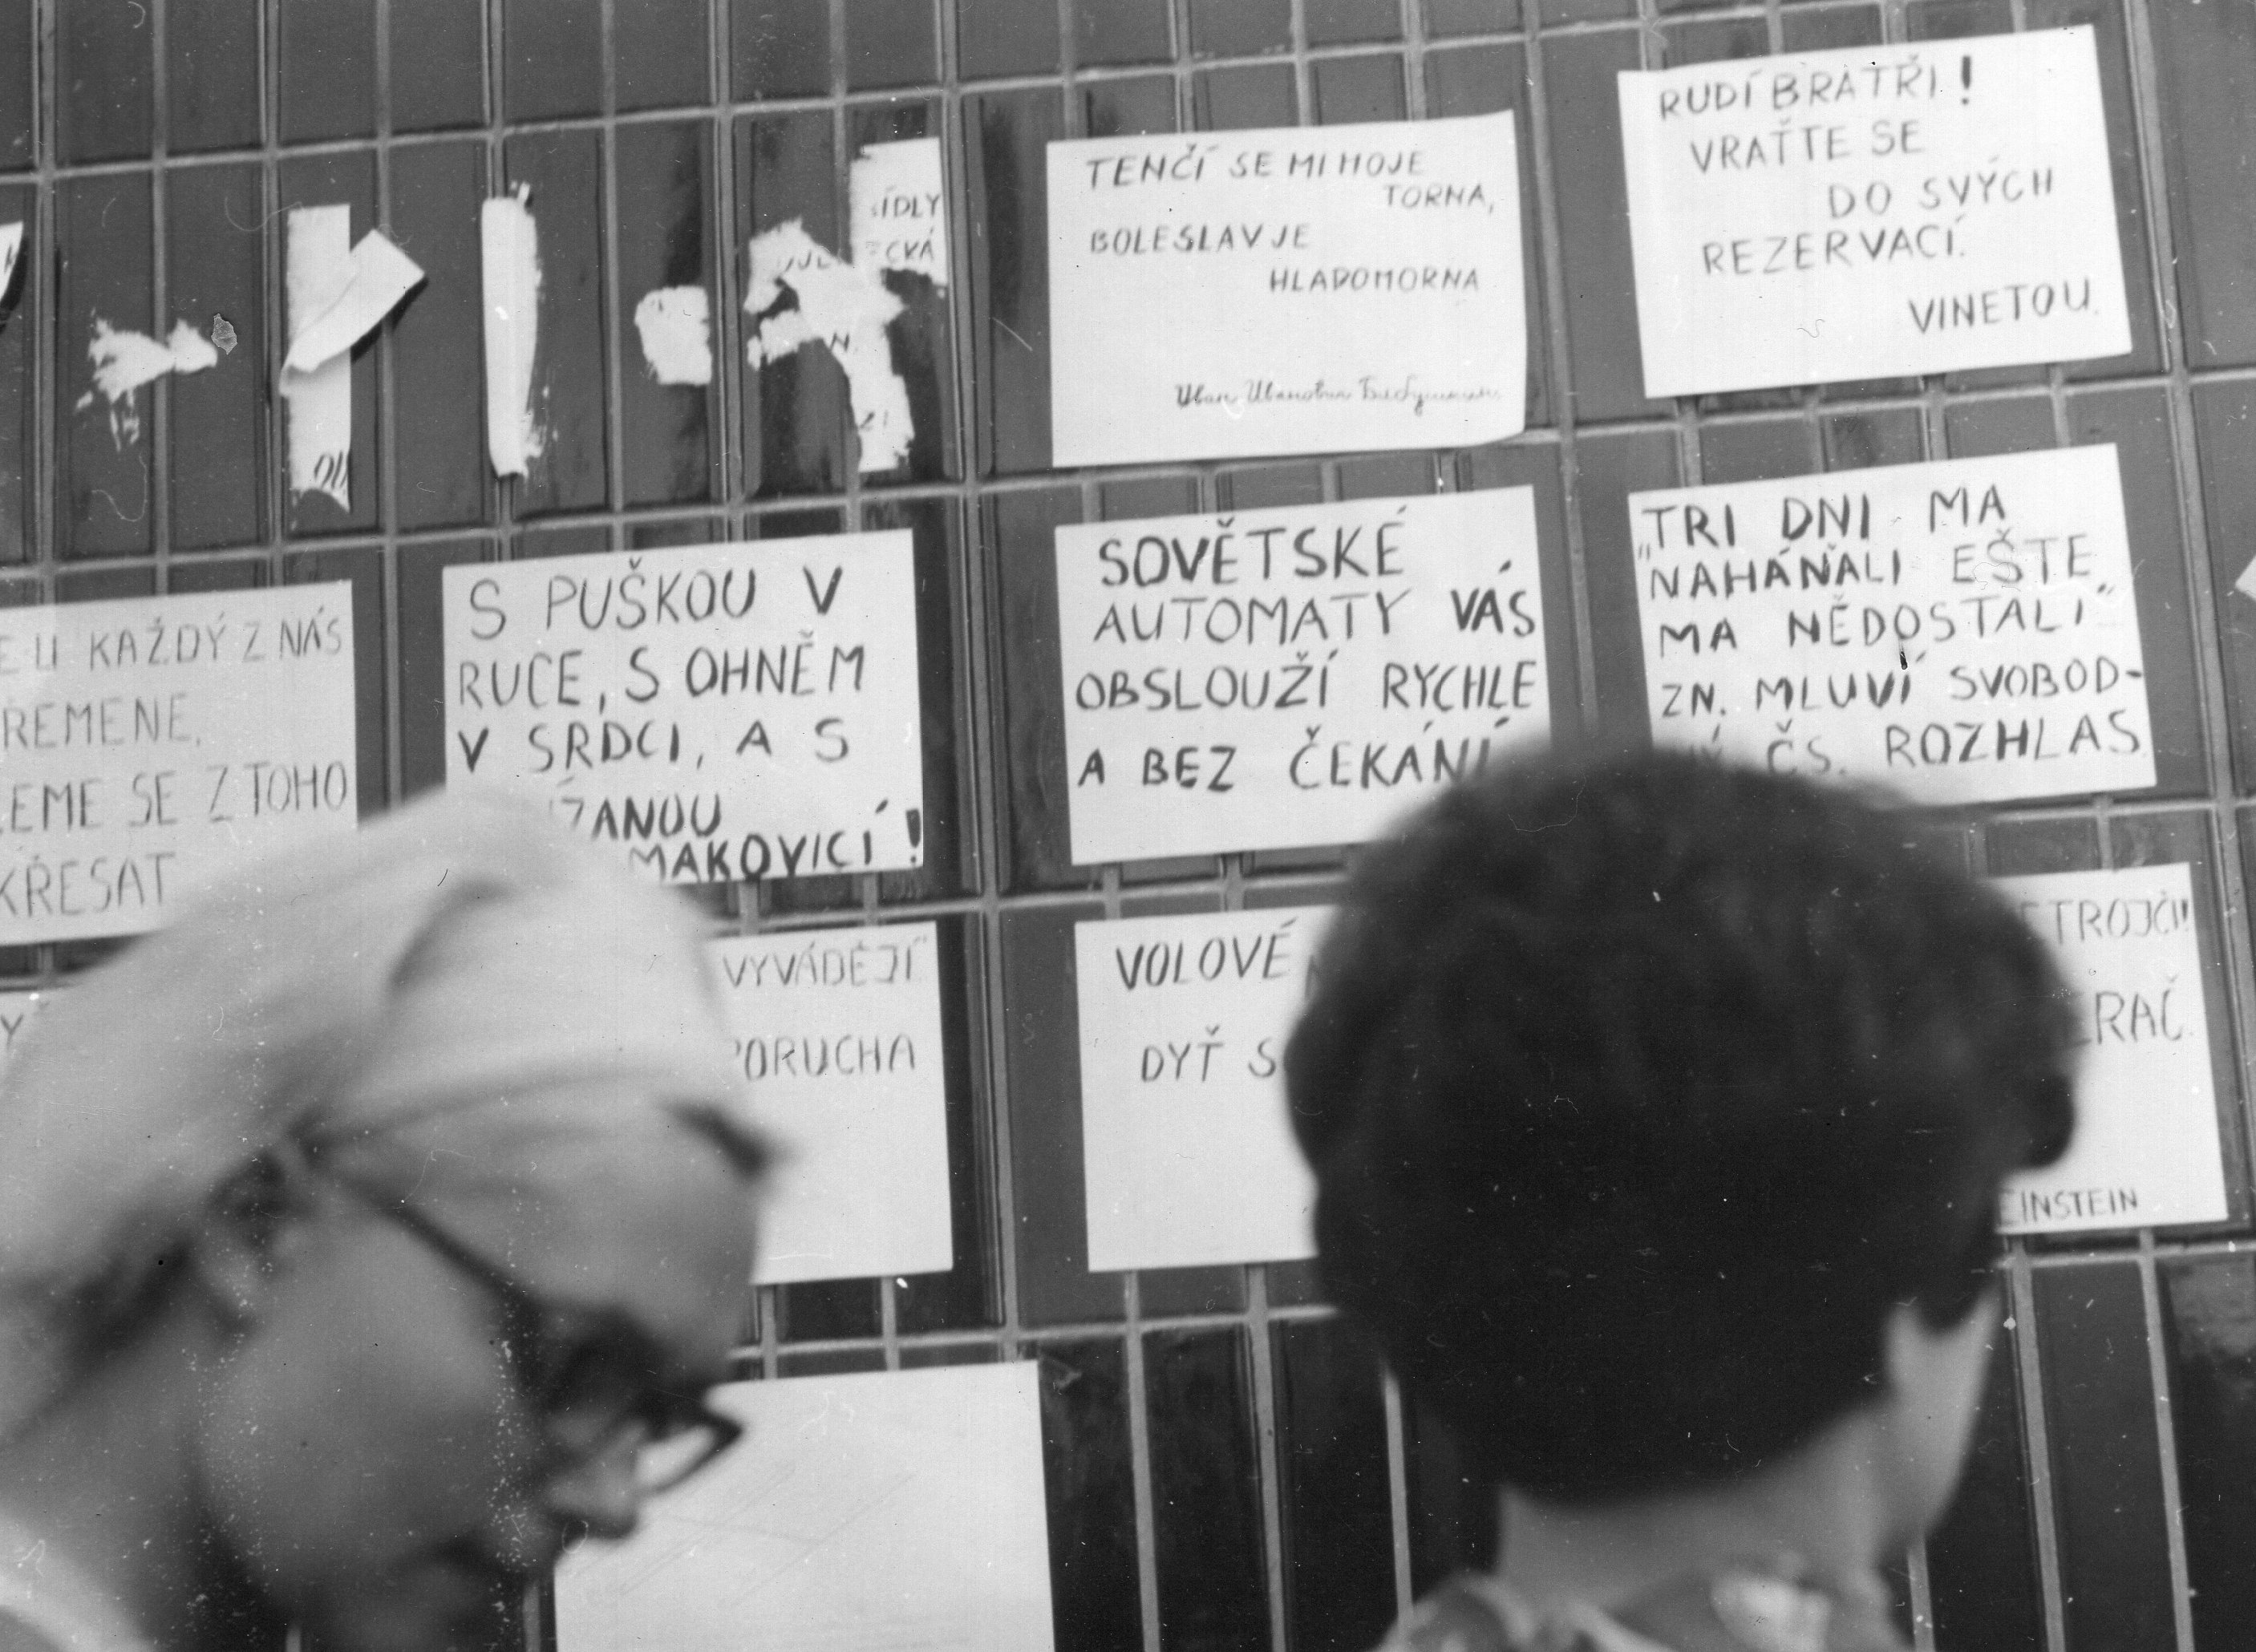 TENČÍ SE MI MOJE
TORNA,
BOLESLAV JE
HLADOMORNA
Иван Иванович
RUDÍ BRATŘI!
VRAŤTE SE
DO SVÝCH
REZERVACÍ.
VINETOU.
ÍDLY
CKÁ
N.
ZI
KAŽDÝ Z NÁS
ŘEMENE,
EME SE Z TOHO
KŘESAT
S PUŠKOU V
RUCE, S OHNĚM
V SRDCI, A S
ŽANOU
MAKOVICÍ!
SOVĚTSKÉ
AUTOMATY VÁS
OBSLOUŽÍ RYCHLE
A BEZ ČEKÁNÍ
"TRI DNI MA
NAHÁŇALI EŠTE
MA NĚDOSTALI"
ZN. MLUVÍ SVOBOD-
NÝ ČS. ROZHLAS
VYVÁDĚJÍ
PORUCHA
VOLOVÉ
DYŤ S
ETROJČI!
ERAČ.
EINSTEIN